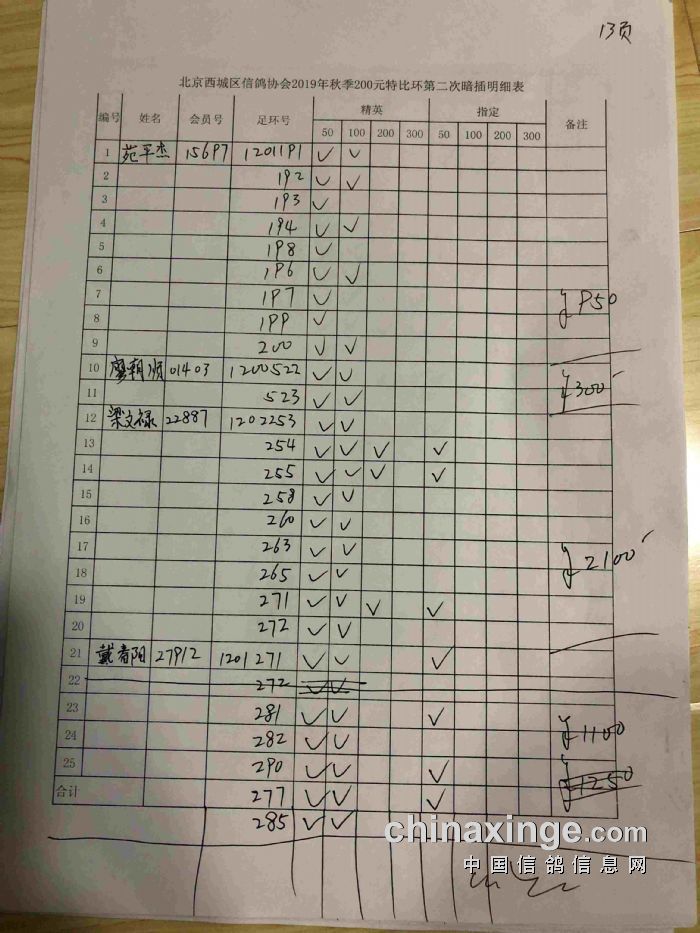 13页
北京西城区信鸽协会2019年秋季200元特比环第二次暗插明细表
编号 姓名 会员号 足环号 精英 指定 备注
50 100 200 300 50 100 200 300
1 苑平杰 15697 1201191 ✓ ✓
2 192 ✓ ✓
3 193 ✓
4 194 ✓ ✓
5 198 ✓
6 196 ✓ ✓
7 197 ✓ 950
8 199 ✓
9 200 ✓ ✓
10 廖朝顺 01403 1200522 ✓ ✓
11 523 ✓ ✓ 300
12 梁文禄 22887 1202253 ✓ ✓
13 254 ✓ ✓ ✓ ✓
14 255 ✓ ✓ ✓ ✓
15 258 ✓ ✓
16 260 ✓ ✓
17 263 ✓ ✓ 2100
18 265 ✓ ✓
19 271 ✓ ✓ ✓ ✓
20 272 ✓ ✓
21 戴春阳 27912 1201271 ✓ ✓ ✓
22 272 ✓ ✓
23 281 ✓ ✓ ✓
24 282 ✓ ✓ 1100
25 290 ✓ ✓ ✓
合计 277 ✓ ✓ ✓ 1250
285 ✓ ✓
chinaxinge.com
中国信鸽信息网